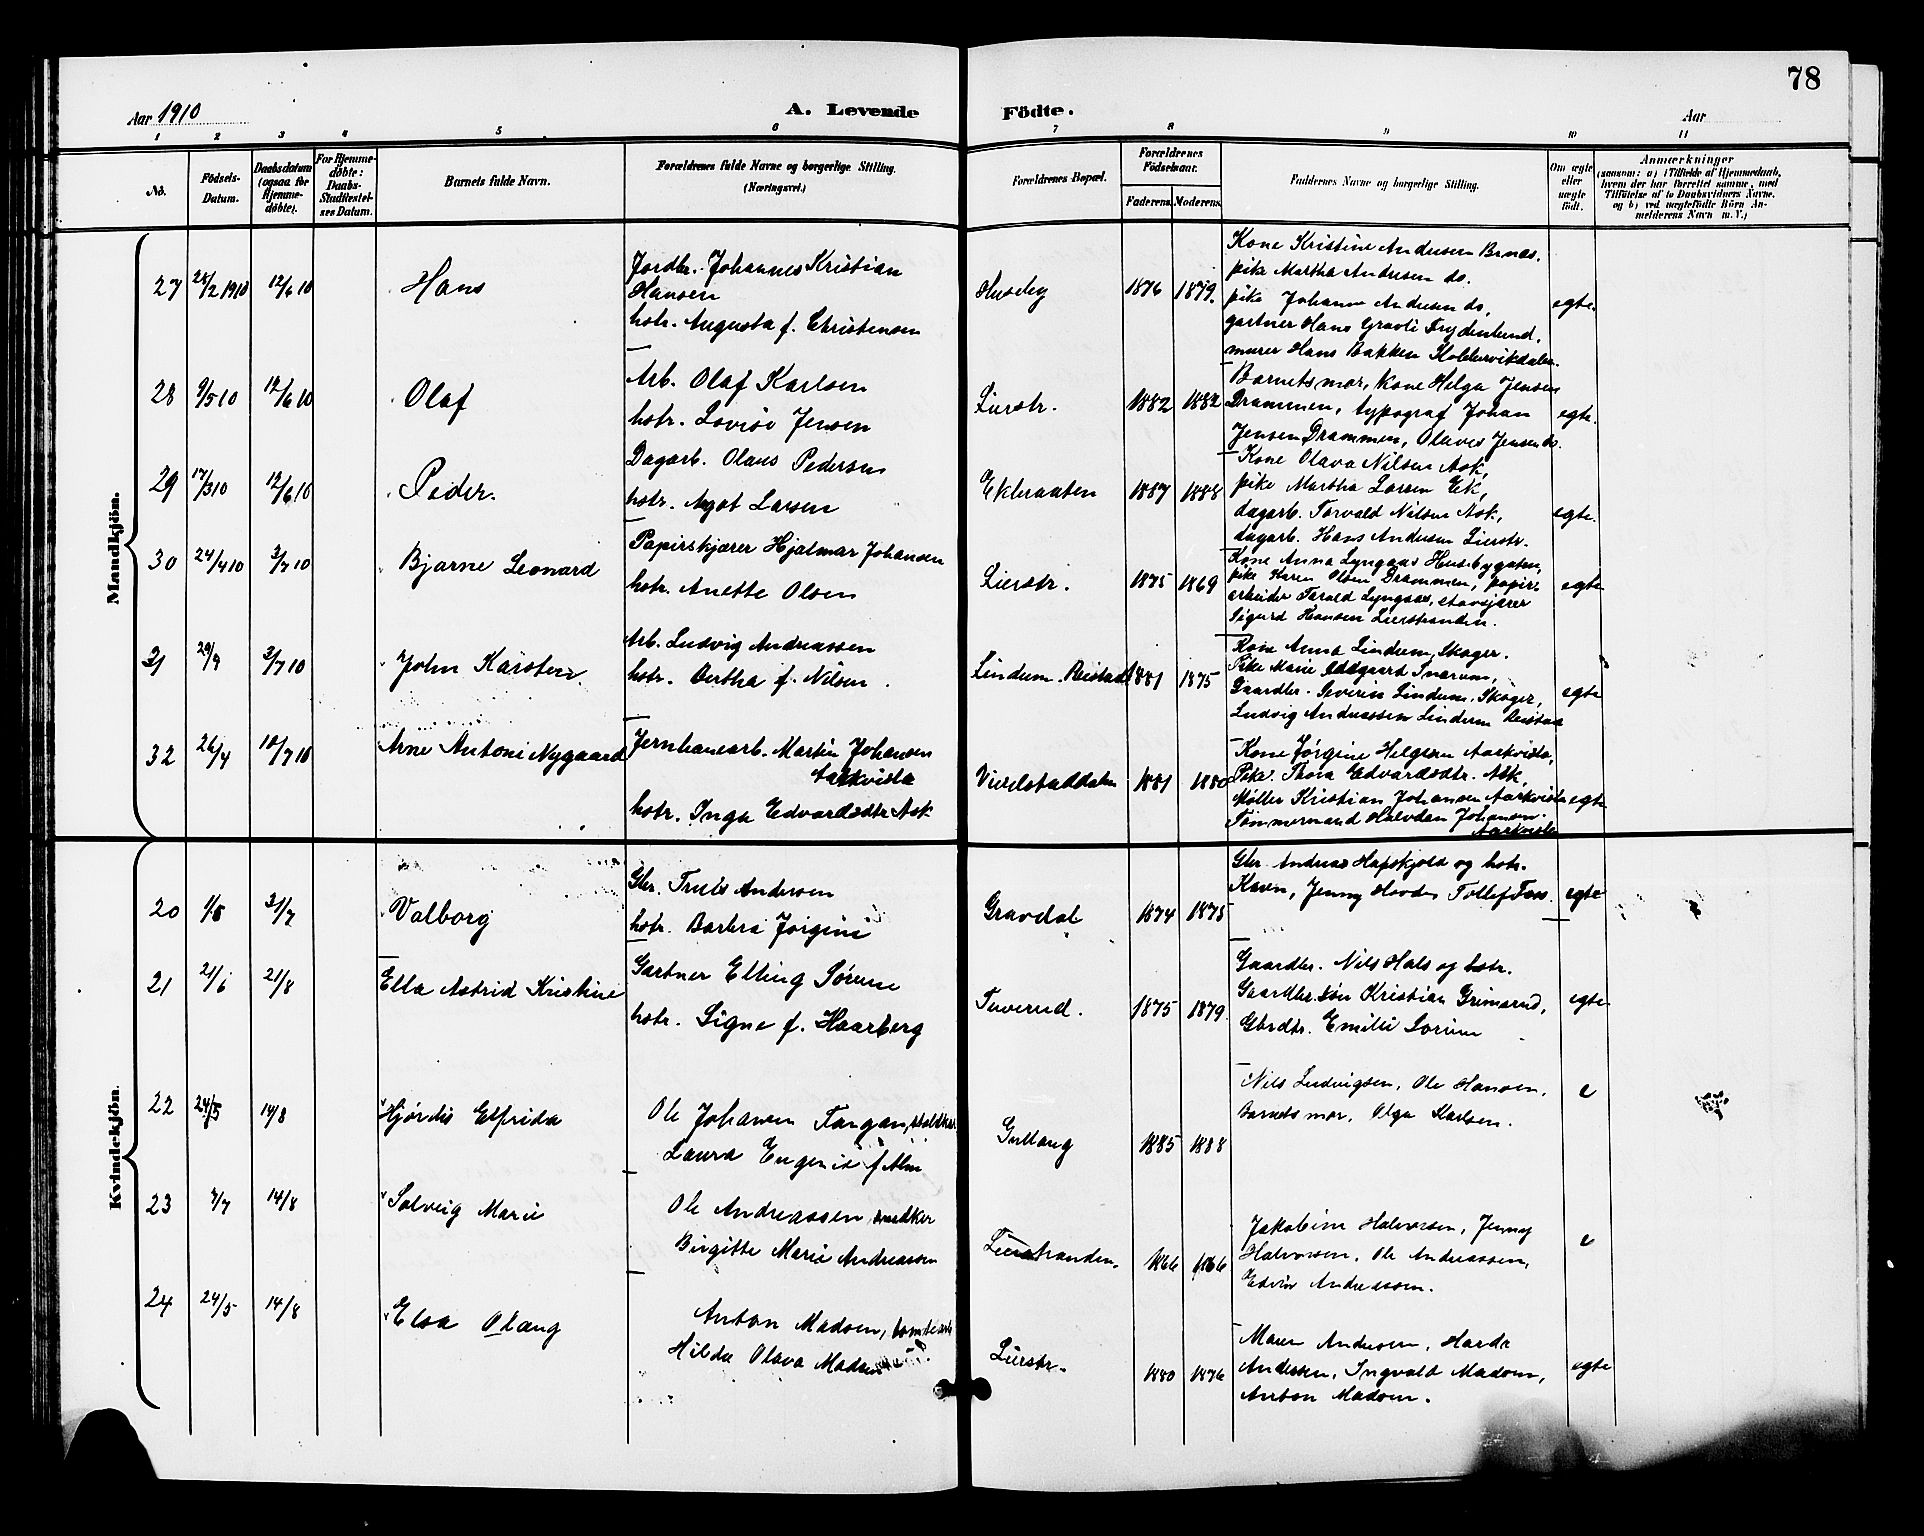 78
Aar 1910
A. Levende Födte.
Aar
1 2 3 4 5 6 7 8 9 10 11
No.
Födsels-Datum.
Daabsdatum (ogsaa for Hjemme-døbte).
For Hjemme-døbte: Daabs-Stadfæstel-ses Datum.
Barnets fulde Navn.
Forældrenes fulde Navne og borgerlige Stilling. (Næringsvei.)
Forældrenes Bopæl.
Forældrenes Födselsaar.
Faderens. Moderens.
Faddernes Navne og borgerlige Stilling.
Om ægte eller uægte födt.
Anmærkninger (saasom: a) i Tilfælde af Hjemmedaab, hvem der har forrettet samme, med Tilföielse af to Daabsvidners Navne, og b) ved uægtefödte Börn An-melderens Navn m. V.)
Mandkjön.
27 28/2 1910 12/6 10 Hans
Jordbr. Johannes Kristian
Hansen
hstr. Augusta f. Christensen
Huseby 1876 1879.
Kone Kristine Andersen
pike Martha Andersen do.
pike Johanne Andersen do,
gartner Hans Gravli Frydenlund,
murer Hans Bakken
egte.
28 9/5 10 12/6 10 Olaf
Arb. Olaf Karlsen
hstr. Lovise Jensen
Lierstr. 1882 1882
Barnets mor, kone Helga Jensen
Drammen, typograf Johan
Jensen Drammen, Olaves Jensen do.
egte.
29 17/3 10 12/6 10 Peder.
Dagarb. Olaus Pedersen
hstr. Agot Larsen
Ekbraaten 1887 1888
Kone Olava Nilsen Ask,
pike Martha Larsen Ek,
dagarb. Torvald Nilsen Ask,
dagarb. Hans Andersen Lierstr.
egte.
30 24/4 10 3/7 10 Bjarne Leonard
Papirskjærer Hjalmar Johansen
hstr. Anette Olsen
Lierstr. 1875 1869
Kone Anna Lyngaas Husebygaten,
pike Karen Olsen Drammen, papir-
arbeider Tarald Lyngaas,
Sigurd Hansen Lierstranden.
egte
31 29/9 3/7 10 John Karsten.
Arb. Ludvig Andreassen
hstr. Bertha f. Nilsen.
Lindum Reistad 1881 1875
Kone Anna Lindum, Skoger.
Pike Marie Oddgaard Snarum,
Gaardbr. Severin Lindum, Skoger,
Ludvig Andreassen Lindum Reistad
egte
32 26/4 10/7 10 Arne Antoni Nygaard
Jernbanearb. Martin Johansen
Aarkvisla
hstr. Inga Edvardsdtr Ask
Vivelstaddalen 1881 1880
Kone Jørgine Helgesen Aarkvisla,
Pike. Thora Edvardsdtr. Ask,
Møller Kristian Johansen Aarkvisla
Tømmermand Halvdan Johansen.
Aarkvisla
egte
Kvindekjön.
20 1/5 31/7 Valborg
Gbr. Truls Andersen
hstr. Barbra Jørgine
Gravdal 1874 1875
Gbr. Andreas Hafskjold og hstr.
Karen, Jenny Hovde Tollef Foss.
egte
21 21/6 21/8 Ella Astrid Kristine
Gartner Elling Sørum
hstr. Signe f. Haarberg
Tuverud. 1875 1879.
Gaardbr. Nils Hals og hstr.
Gaardbr. søn Kristian Grimsrud,
Gbrdtr. Emilie Sorum
egte
22 24/5 14/8 Hjørdis Elfrida
Ole Johansen Tangan,
Laura Eugenie f Alm
Gullaug 1885 1888
Nils Ludvigsen, Ole Hansen,
Barnets mor, Olga Karlsen.
e
23 7/7 14/8 Solveig Marie
Ole Andreassen, snedker
Birgitte Marie Andreassen
Lierstranden. 1866 1866
Jakobine Halvorsen, Jenny
Halvorsen, Ole Andreassen,
Edvin Andreassen.
e
24 24/5 14/8 Elsa Olaug
Anton Madsen, tomtearb
Hilda Olava Madsen
Lierstr. 1880 1876
Maren Andersen, Harda
Andersen, Ingvald Madsen,
Anton Madsen.
egte